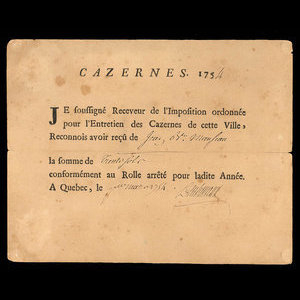 CAZERNES. 1754
JE soussigné Receveur de l'Imposition ordonnée
pour l'Entretien des Cazernes de cette Ville,
Reconnois avoir reçu de
la somme de
conformément au Rolle arrêté pour ladite Année.
A Quebec, le